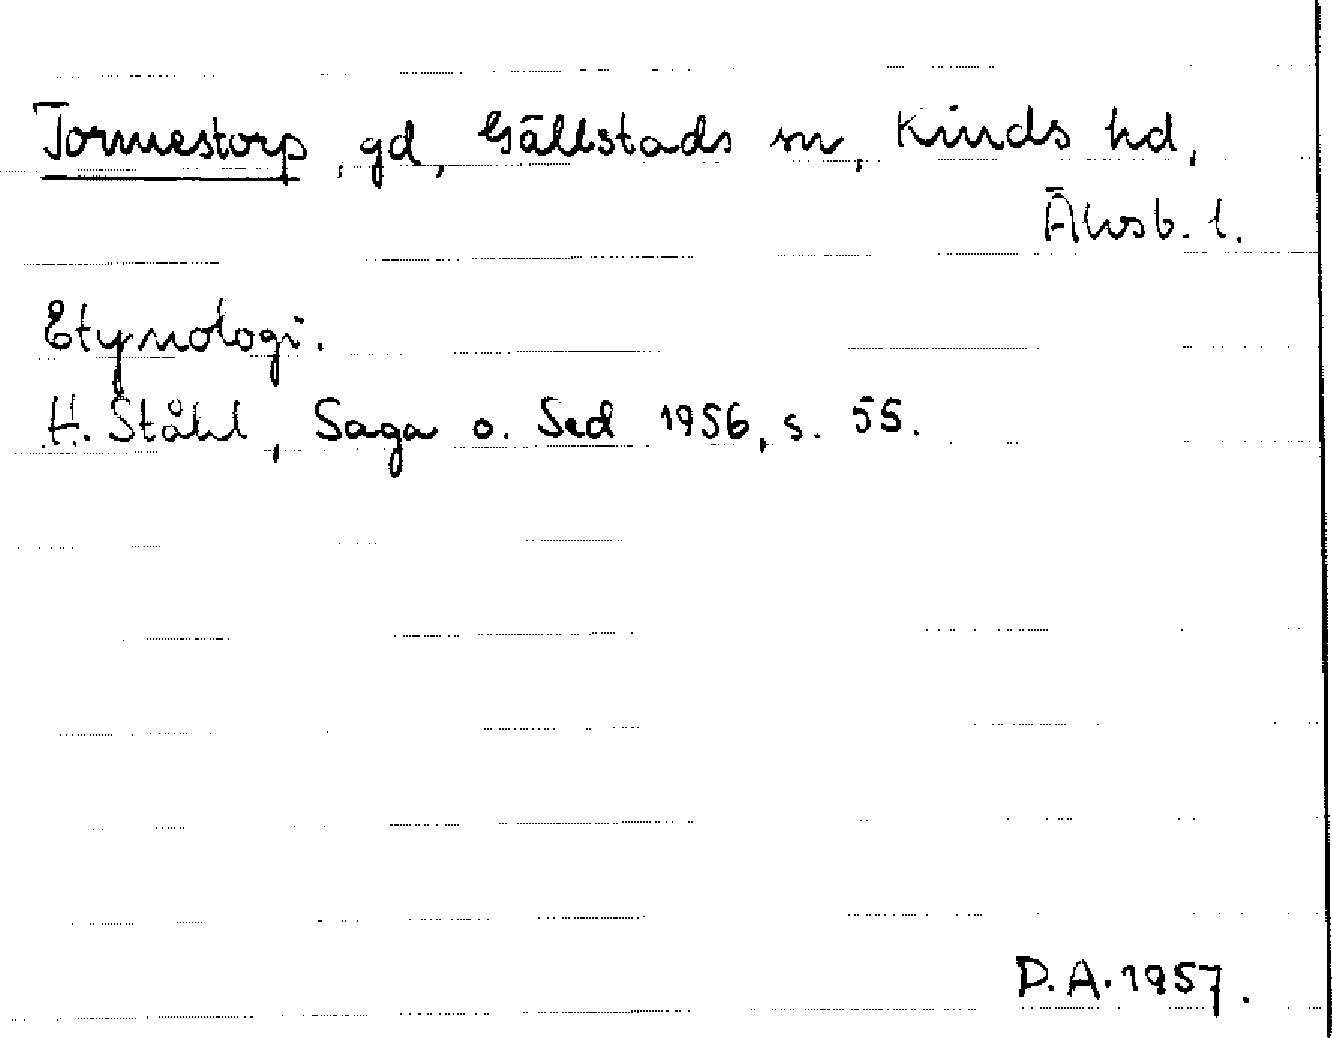 Tormestorp, gd, Gällstads sn, Kinds hd,
Älvsb. l.
Etymologi.
H. Ståhl, Saga o. Sed 1956, s. 55.
D.A. 1957.